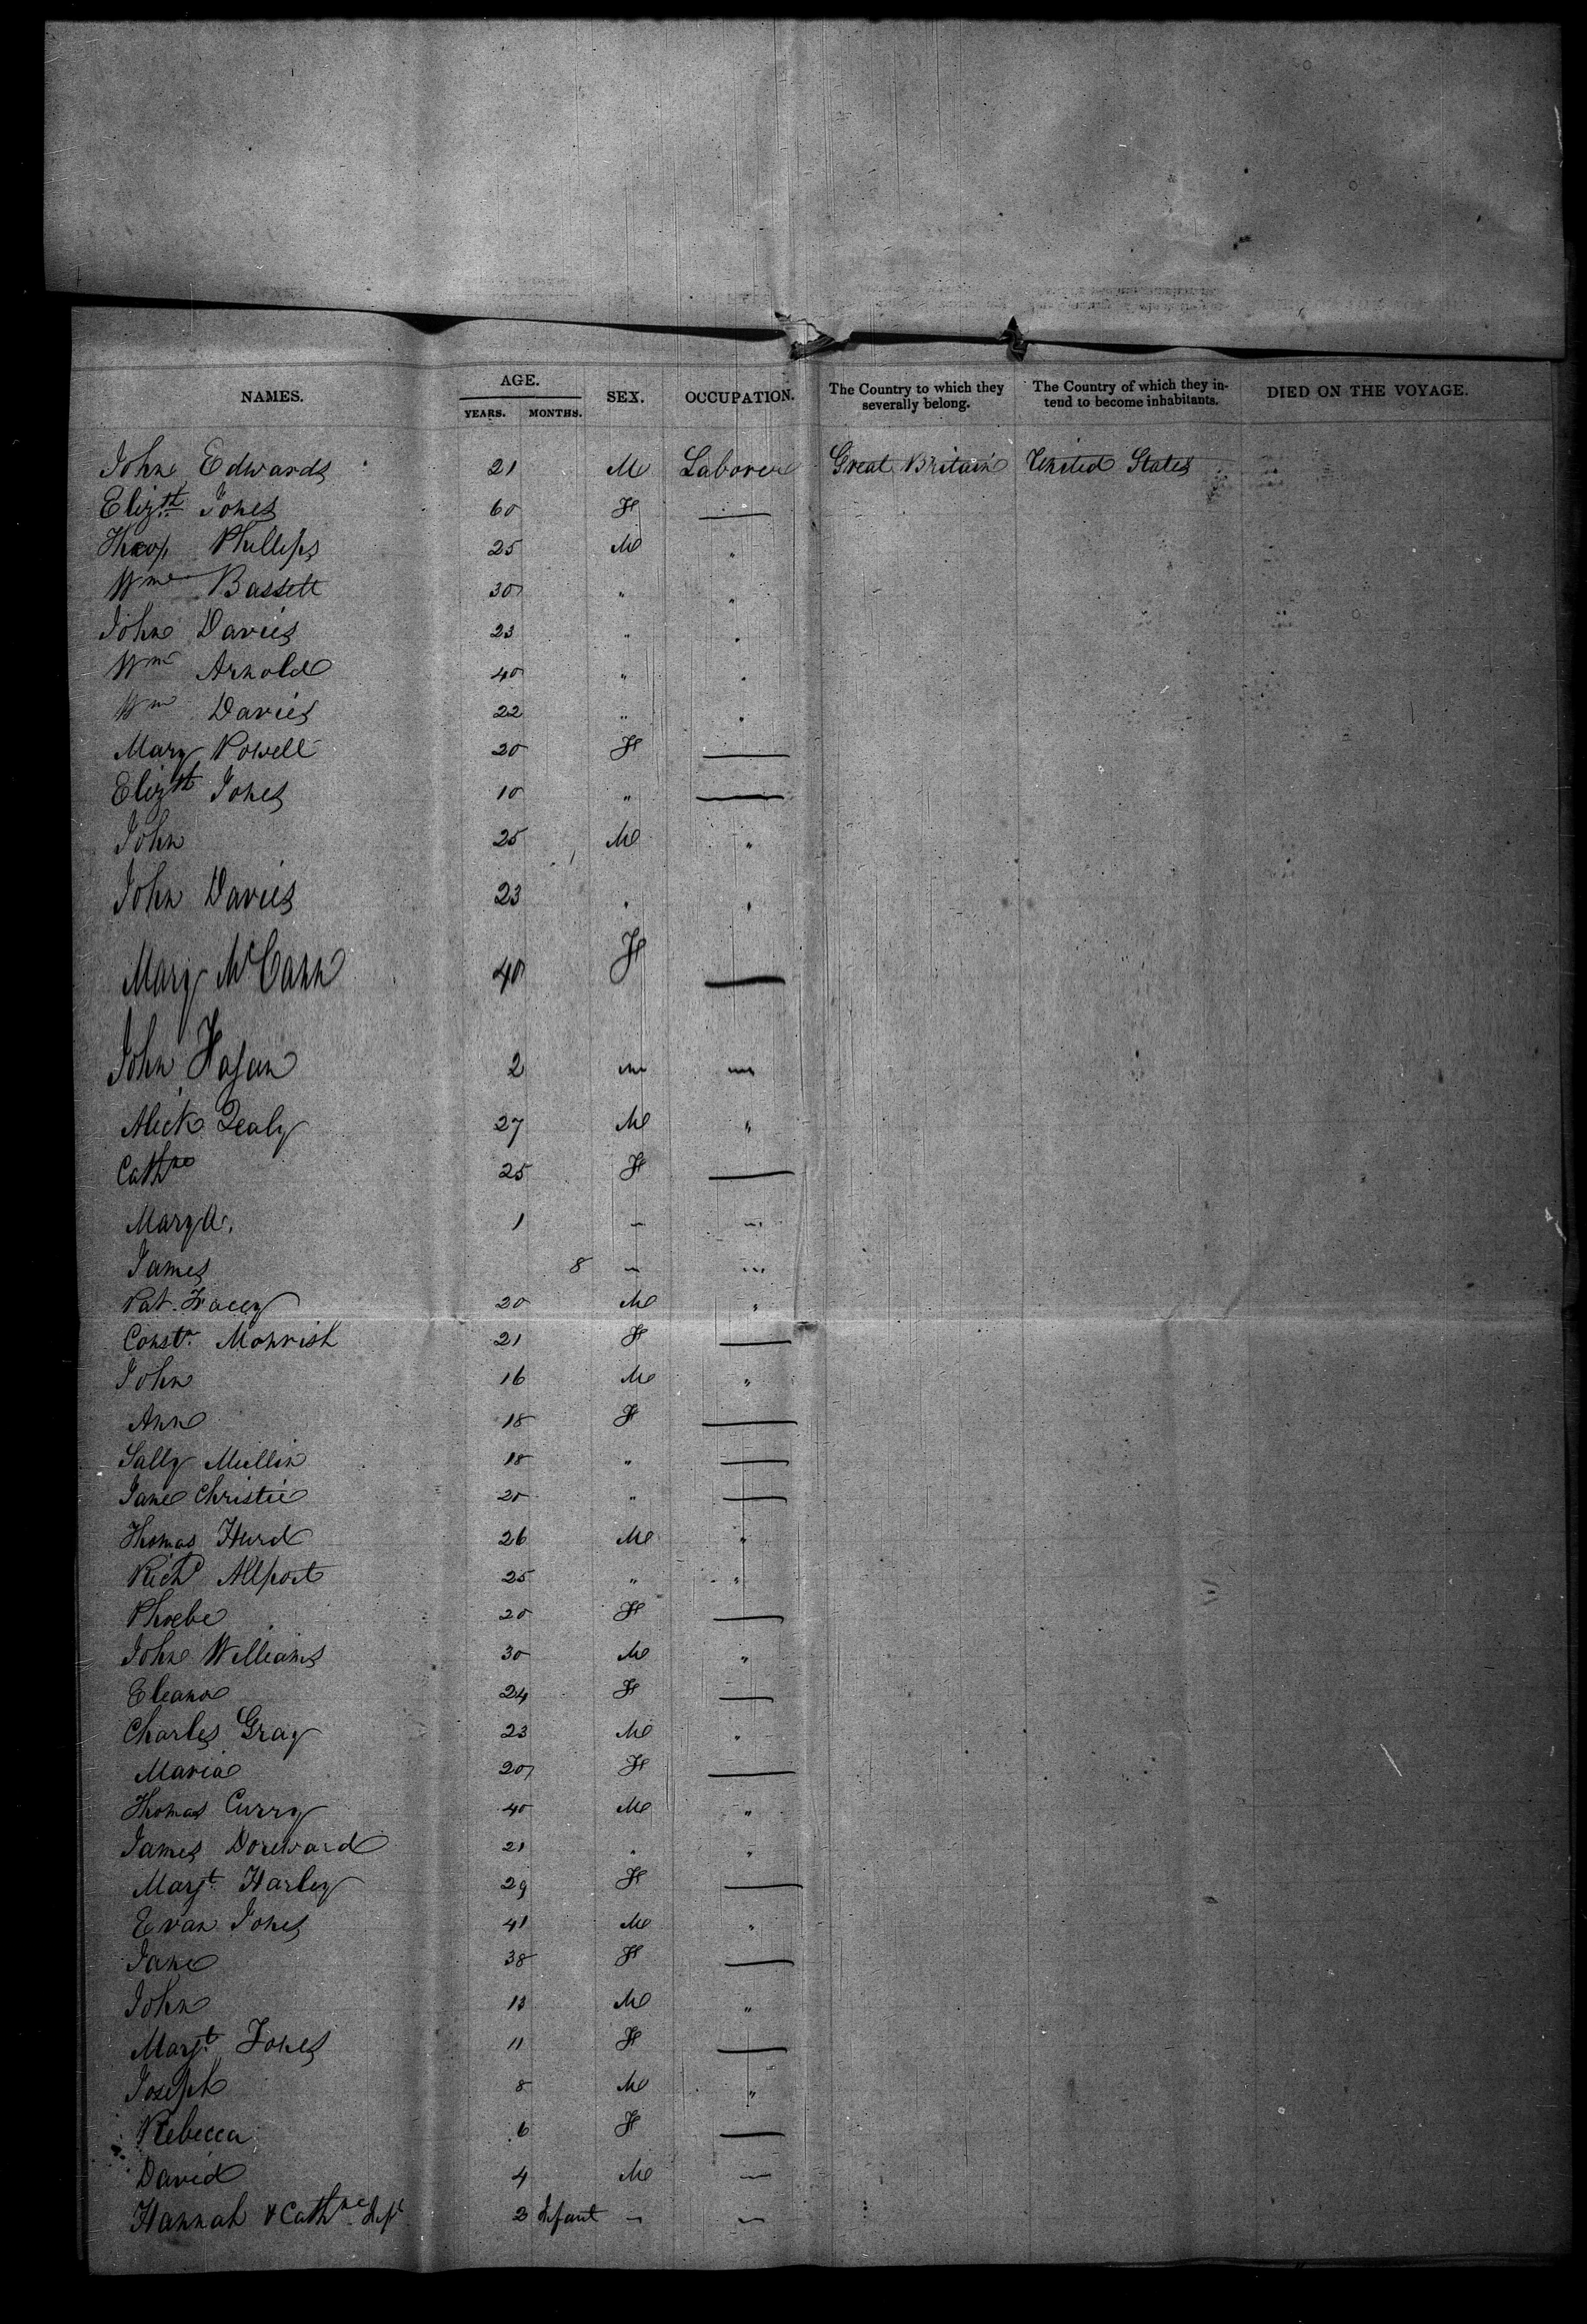 NAMES. AGE. YEARS. MONTHS. SEX. OCCUPATION. The Country to which they severally belong. The Country of which they intend to become inhabitants. DIED ON THE VOYAGE.
John Edwards 21 M Laborer Great Britain United States
Elizth Jones 60 F —
Theop Phillips 25 M "
Wm Bassett 30 " "
John Davies 23 " "
Wm Arnold 40 " "
Wm Davies 22 " "
Mary Powell 20 F —
Elizth Jones 10 " —
John 25 M "
John Davies 23 " "
Mary McCann 40 F —
John Fagan 2 — —
Mick Qealy 27 M "
Cathne 25 F —
Mary A. 1 — —
James 8 — —
Pat. Facey 20 M "
Const. Monrish 21 F —
John 16 M "
Ann 18 F —
Sally Mullin 18 " —
Jane Christie 20 " —
Thomas Hurd 26 M "
Richd Allport 25 " "
Phoebe 20 F —
John Williams 30 M "
Eleanor 24 F —
Charles Gray 23 M "
Maria 20 F —
Thomas Curry 40 M "
James Doreward 21 " "
Margt Harley 29 F —
Evan Jones 41 M "
Jane 38 F —
John 13 M "
Margt Jones 11 F —
Joseph 8 M "
Rebecca 6 F —
David 4 M —
Hannah & Cathne Inft 2 Infant — —